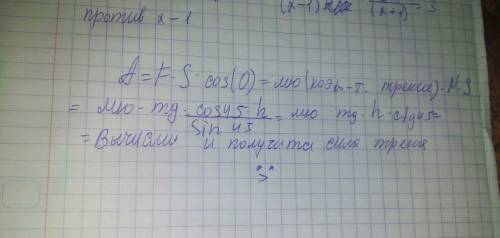 (x-1) (x+1) = 3
против x-1
A = F · S · cos(0) = мю (коэф-т. трения) · N · S
= мю · mg · cos45 · h / sin 45 = мю · mg · h · ctg45 =
= Вычисли и получится сила трения